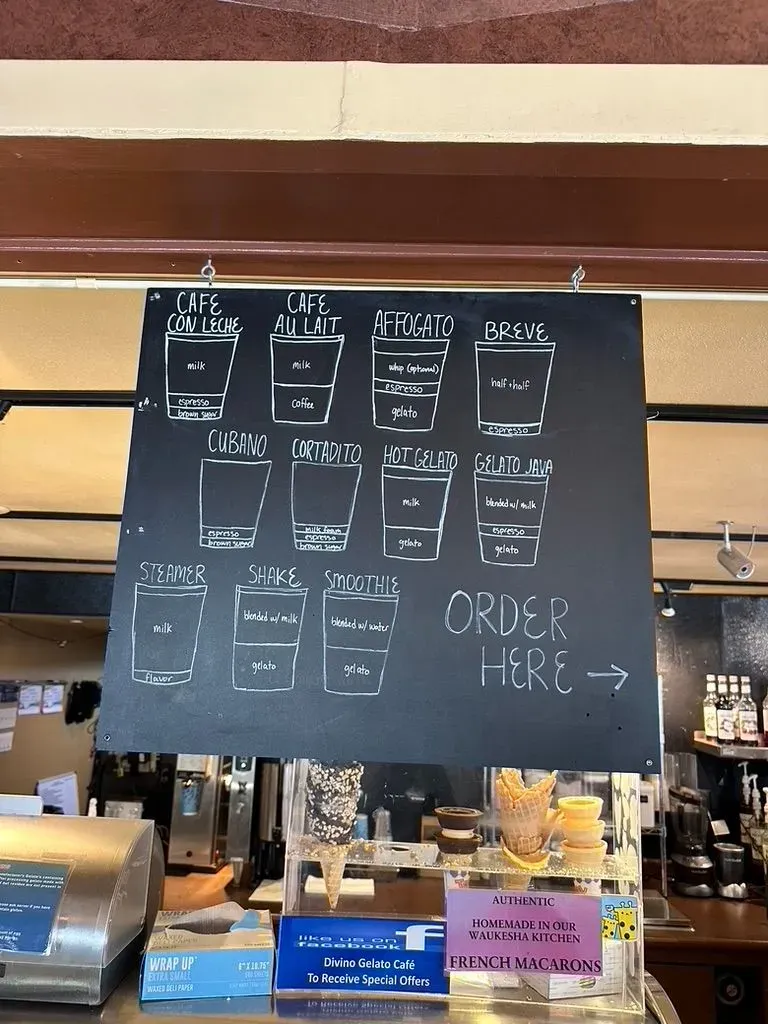 CAFE
CON LECHE
milk
espresso
brown sugar
CAFE
AU LAIT
milk
coffee
AFFOGATO
whip (optional)
espresso
gelato
BREVE
half + half
espresso
CUBANO
espresso
brown sugar
CORTADITO
milk foam
espresso
brown sugar
HOT GELATO
milk
gelato
GELATO JAVA
blended w/ milk
espresso
gelato
STEAMER
milk
flavor
SHAKE
blended w/ milk
gelato
SMOOTHIE
blended w/ water
gelato
ORDER
HERE →
WRAP UP
EXTRA SMALL
WAXED DELI PAPER
6" X 10.75"
like us on
facebook
f
Divino Gelato Café
To Receive Special Offers
AUTHENTIC
HOMEMADE IN OUR
WAUKESHA KITCHEN
FRENCH MACARONS